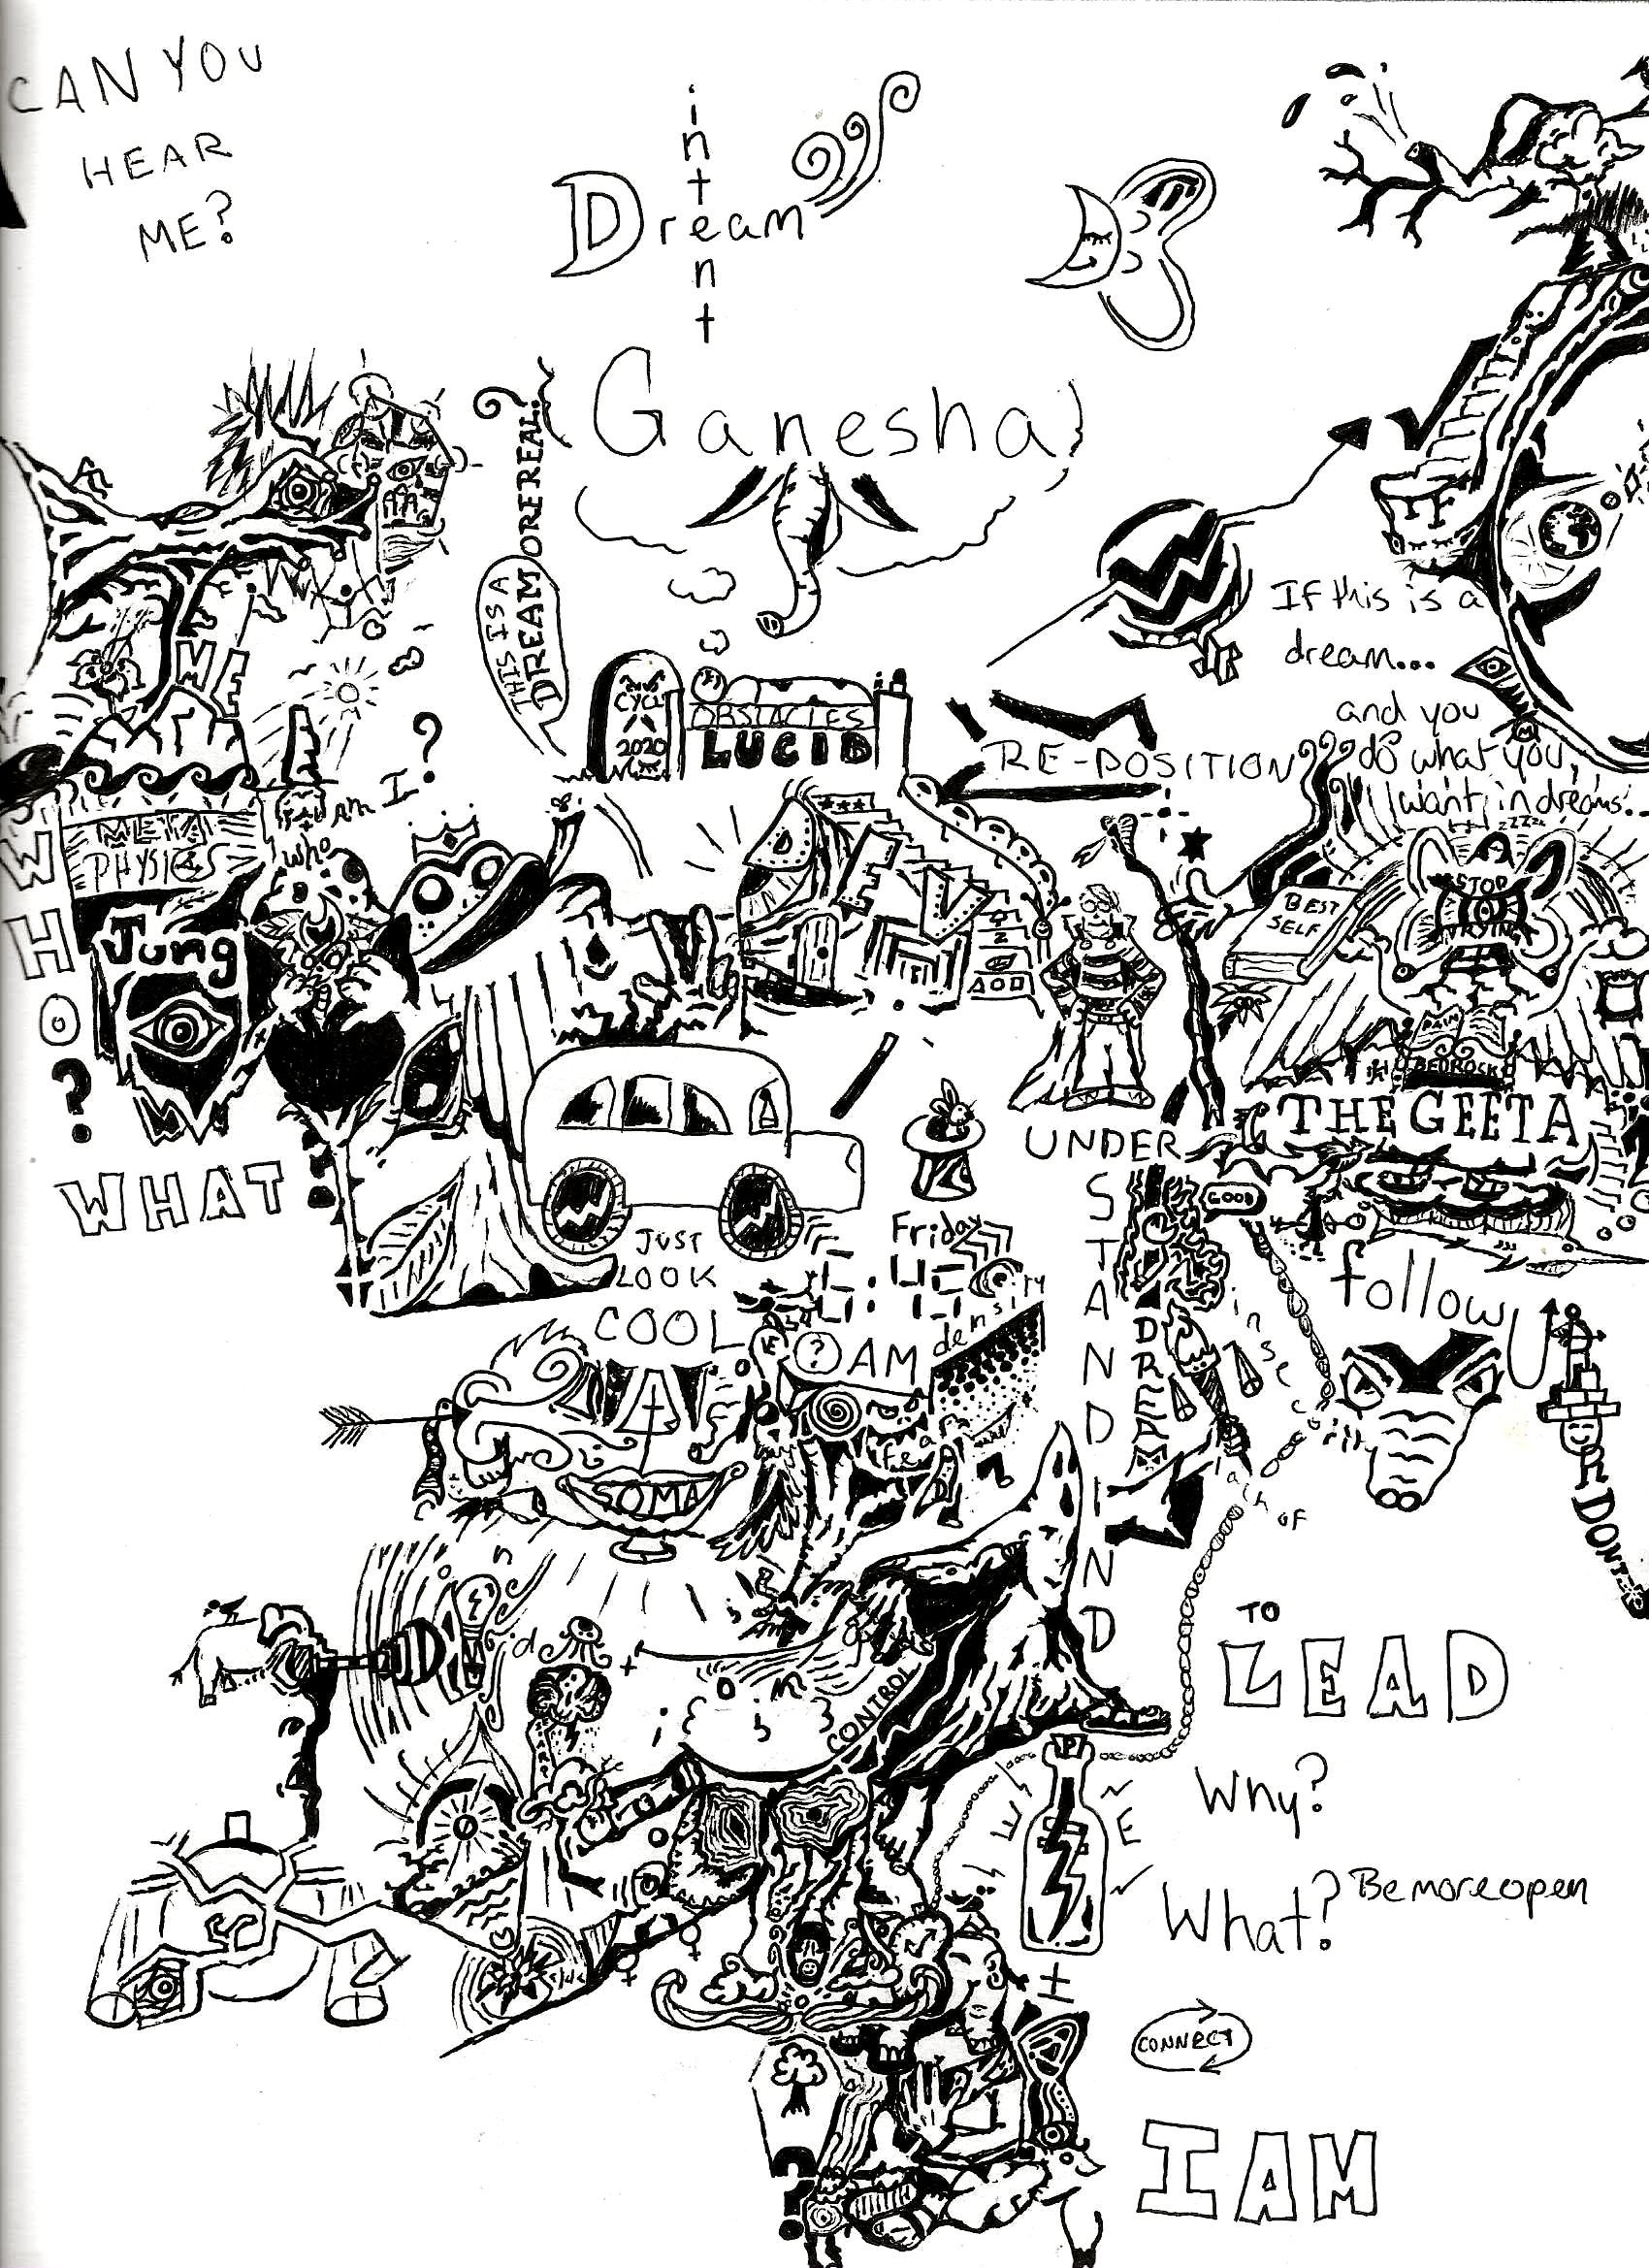 CAN YOU
HEAR
ME?
intent
Dream
Ganesha
THIS IS A
DREAM OR REAL?
ME
CYCLE
2020
OBSTACLES
LUCID
If this is a
dream...
and you
do what you,
want in dreams...
RE-POSITION
I?
AM
who
WHO?
META
PHYSICS
Jung
WHAT
BEST
SELF
STOP
TRYING
PAIN
BEDROCK
THE GEETA
UNDER
STANDIND
GOOD
DREAM
JUST
LOOK
COOL
Friday
4:40
AM
density
fear
SOMA
follow
insecurity
lack of
OR
DONT
CONTROL
TO
LEAD
Why?
What? Be more open
CONNECT
I AM